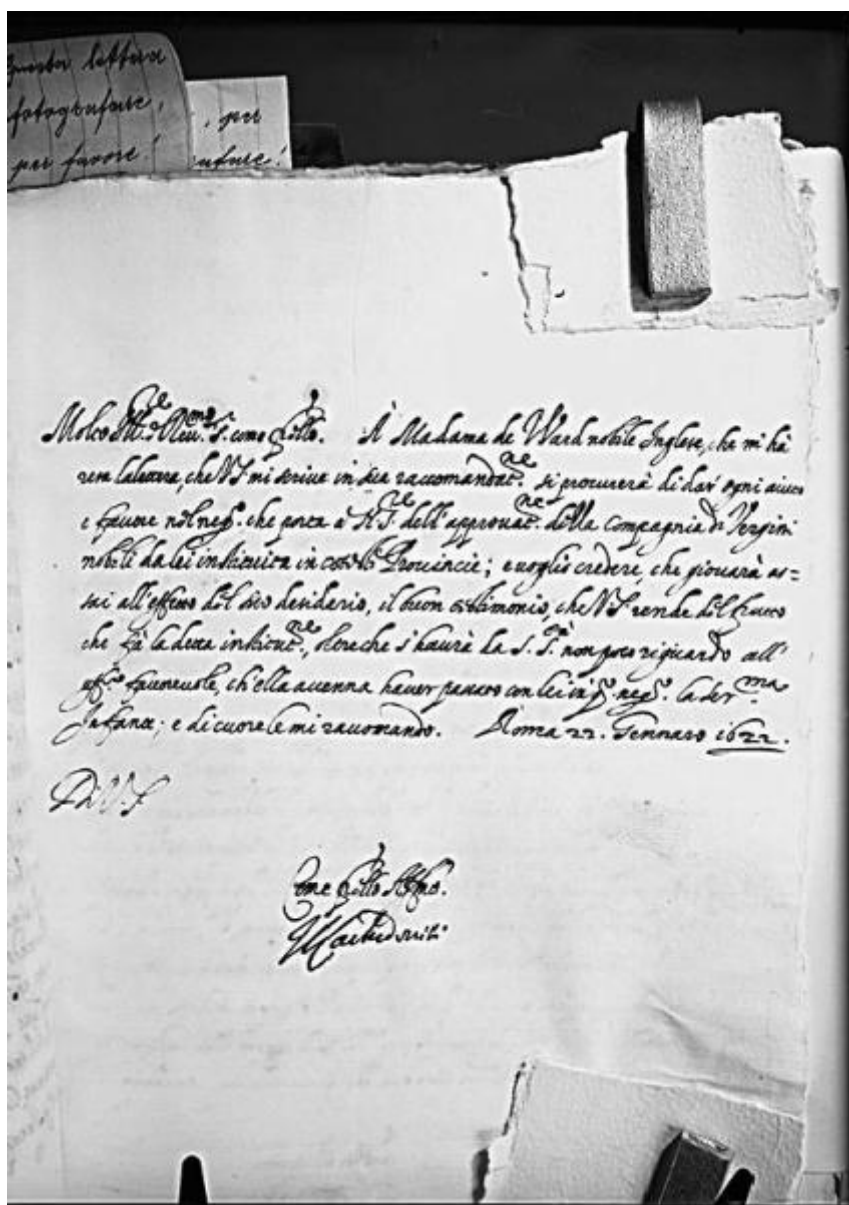 questa lettera
fotografare,
per favore!
, per
afare!
Molto Ill.re e Rev.mo S.r come f.llo. A Madama de Ward nobile Inglese, che mi hà
resa la lettera, che VS mi scrive in sua raccomandat.ne si procurerà di dar ogni aiuto
e favore nel neg.o che porta à N.S.re dell'approvat.ne della Compagnia di Vergini
nobili da lei instituita in coteste Provincie; e voglio credere, che giovarà as=
sai all'effetto del suo desiderio, il buon testimonio, che VS rende del frutto
che fà la detta institut.ne, oltre che s'haurà da S. S.tà non poco riguardo all'
uff.o favorevole, ch'ella accenna haver passato con lei in q.o neg.o la Ser.ma
Infante; e di cuore le mi raccomando. Roma 22. Gennaro 1622.
Di V.S.
Come f.llo Aff.mo